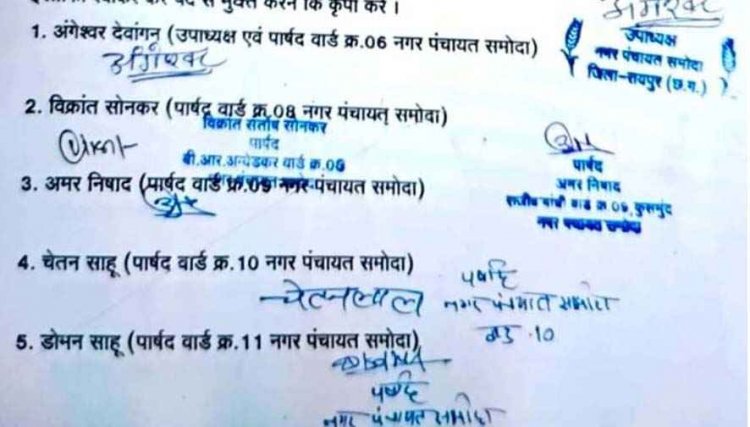 स्वीकार कर पद से मुक्त करने कि कृपा करें ।
अंगेश्वर
1. अंगेश्वर देवांगन (उपाध्यक्ष एवं पार्षद वार्ड क्र.06 नगर पंचायत समोदा)
उपाध्यक्ष
नगर पंचायत समोदा
जिला-रायपुर (छ.ग.)
अंगेश्वर
2. विक्रांत सोनकर (पार्षद वार्ड क्र.08 नगर पंचायत समोदा)
विक्रांत संतोष सोनकर
पार्षद
बी.आर.अम्बेडकर वार्ड क्र.08
3. अमर निषाद (पार्षद वार्ड क्र.09 नगर पंचायत समोदा)
पार्षद
अमर निषाद
राजीव गांधी वार्ड क्र 09, कुसमुंद
नगर पंचायत समोदा
4. चेतन साहू (पार्षद वार्ड क्र.10 नगर पंचायत समोदा)
चेतनलाल
पार्षद
नगर पंचायत समोदा
वार्ड 10
5. डोमन साहू (पार्षद वार्ड क्र.11 नगर पंचायत समोदा)
पार्षद
नगर पंचायत समोदा